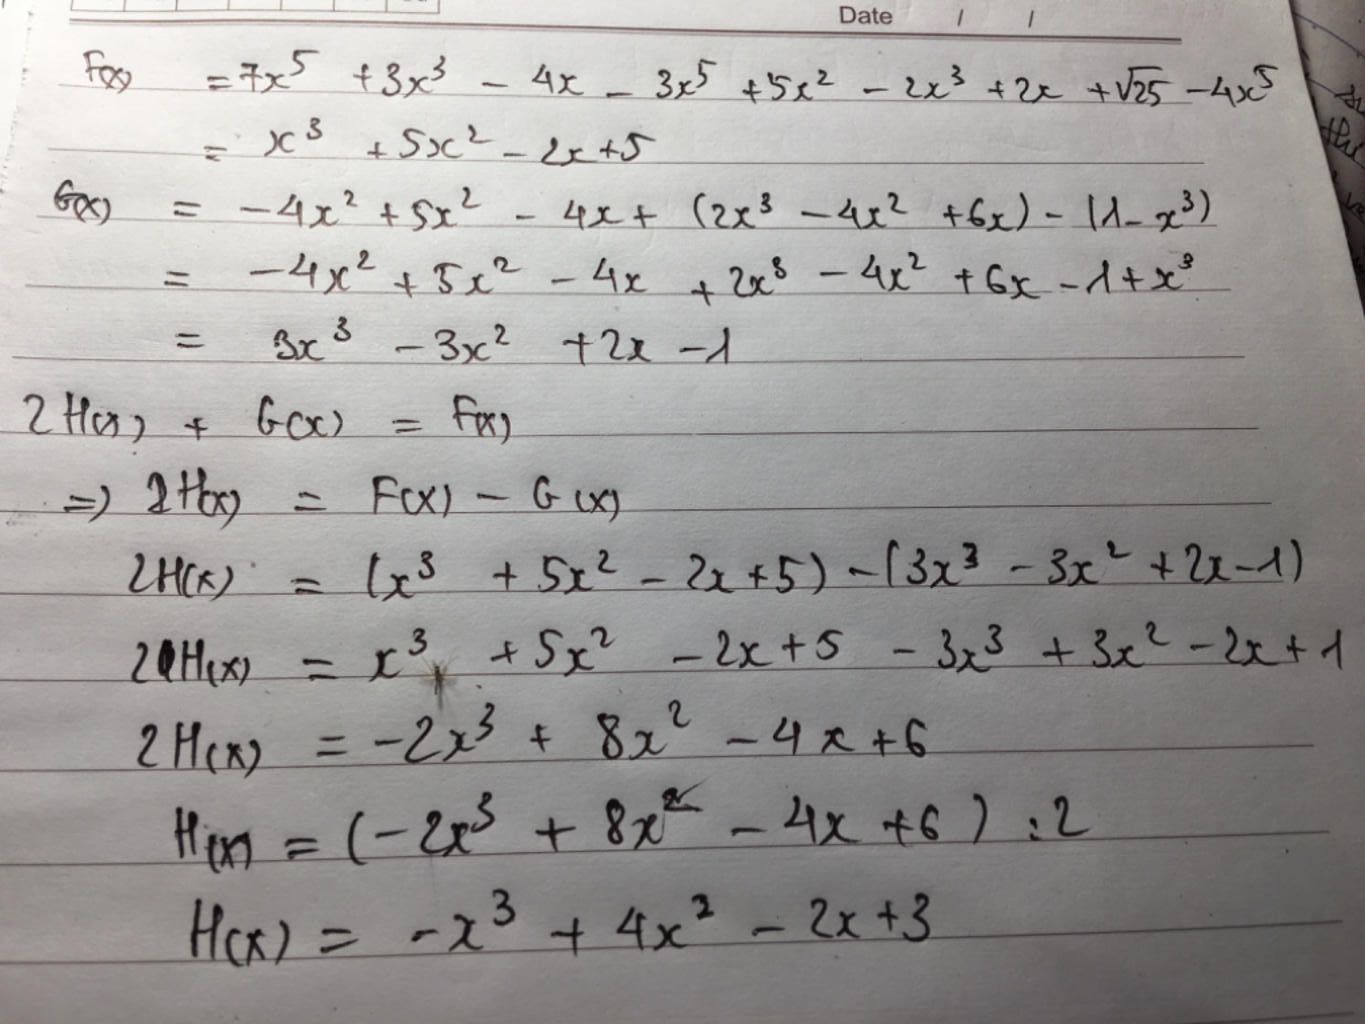 Date / /
F(x) = 7x⁵ + 3x³ - 4x - 3x⁵ + 5x² - 2x³ + 2x + √25 - 4x⁵
= x³ + 5x² - 2x + 5
G(x) = -4x² + 5x² - 4x + (2x³ - 4x² + 6x) - (1 - x³)
= -4x² + 5x² - 4x + 2x³ - 4x² + 6x - 1 + x³
= 3x³ - 3x² + 2x - 1
2H(x) + G(x) = F(x)
=> 2H(x) = F(x) - G(x)
2H(x) = (x³ + 5x² - 2x + 5) - (3x³ - 3x² + 2x - 1)
2H(x) = x³ + 5x² - 2x + 5 - 3x³ + 3x² - 2x + 1
2H(x) = -2x³ + 8x² - 4x + 6
H(x) = (-2x³ + 8x² - 4x + 6) : 2
H(x) = -x³ + 4x² - 2x + 3